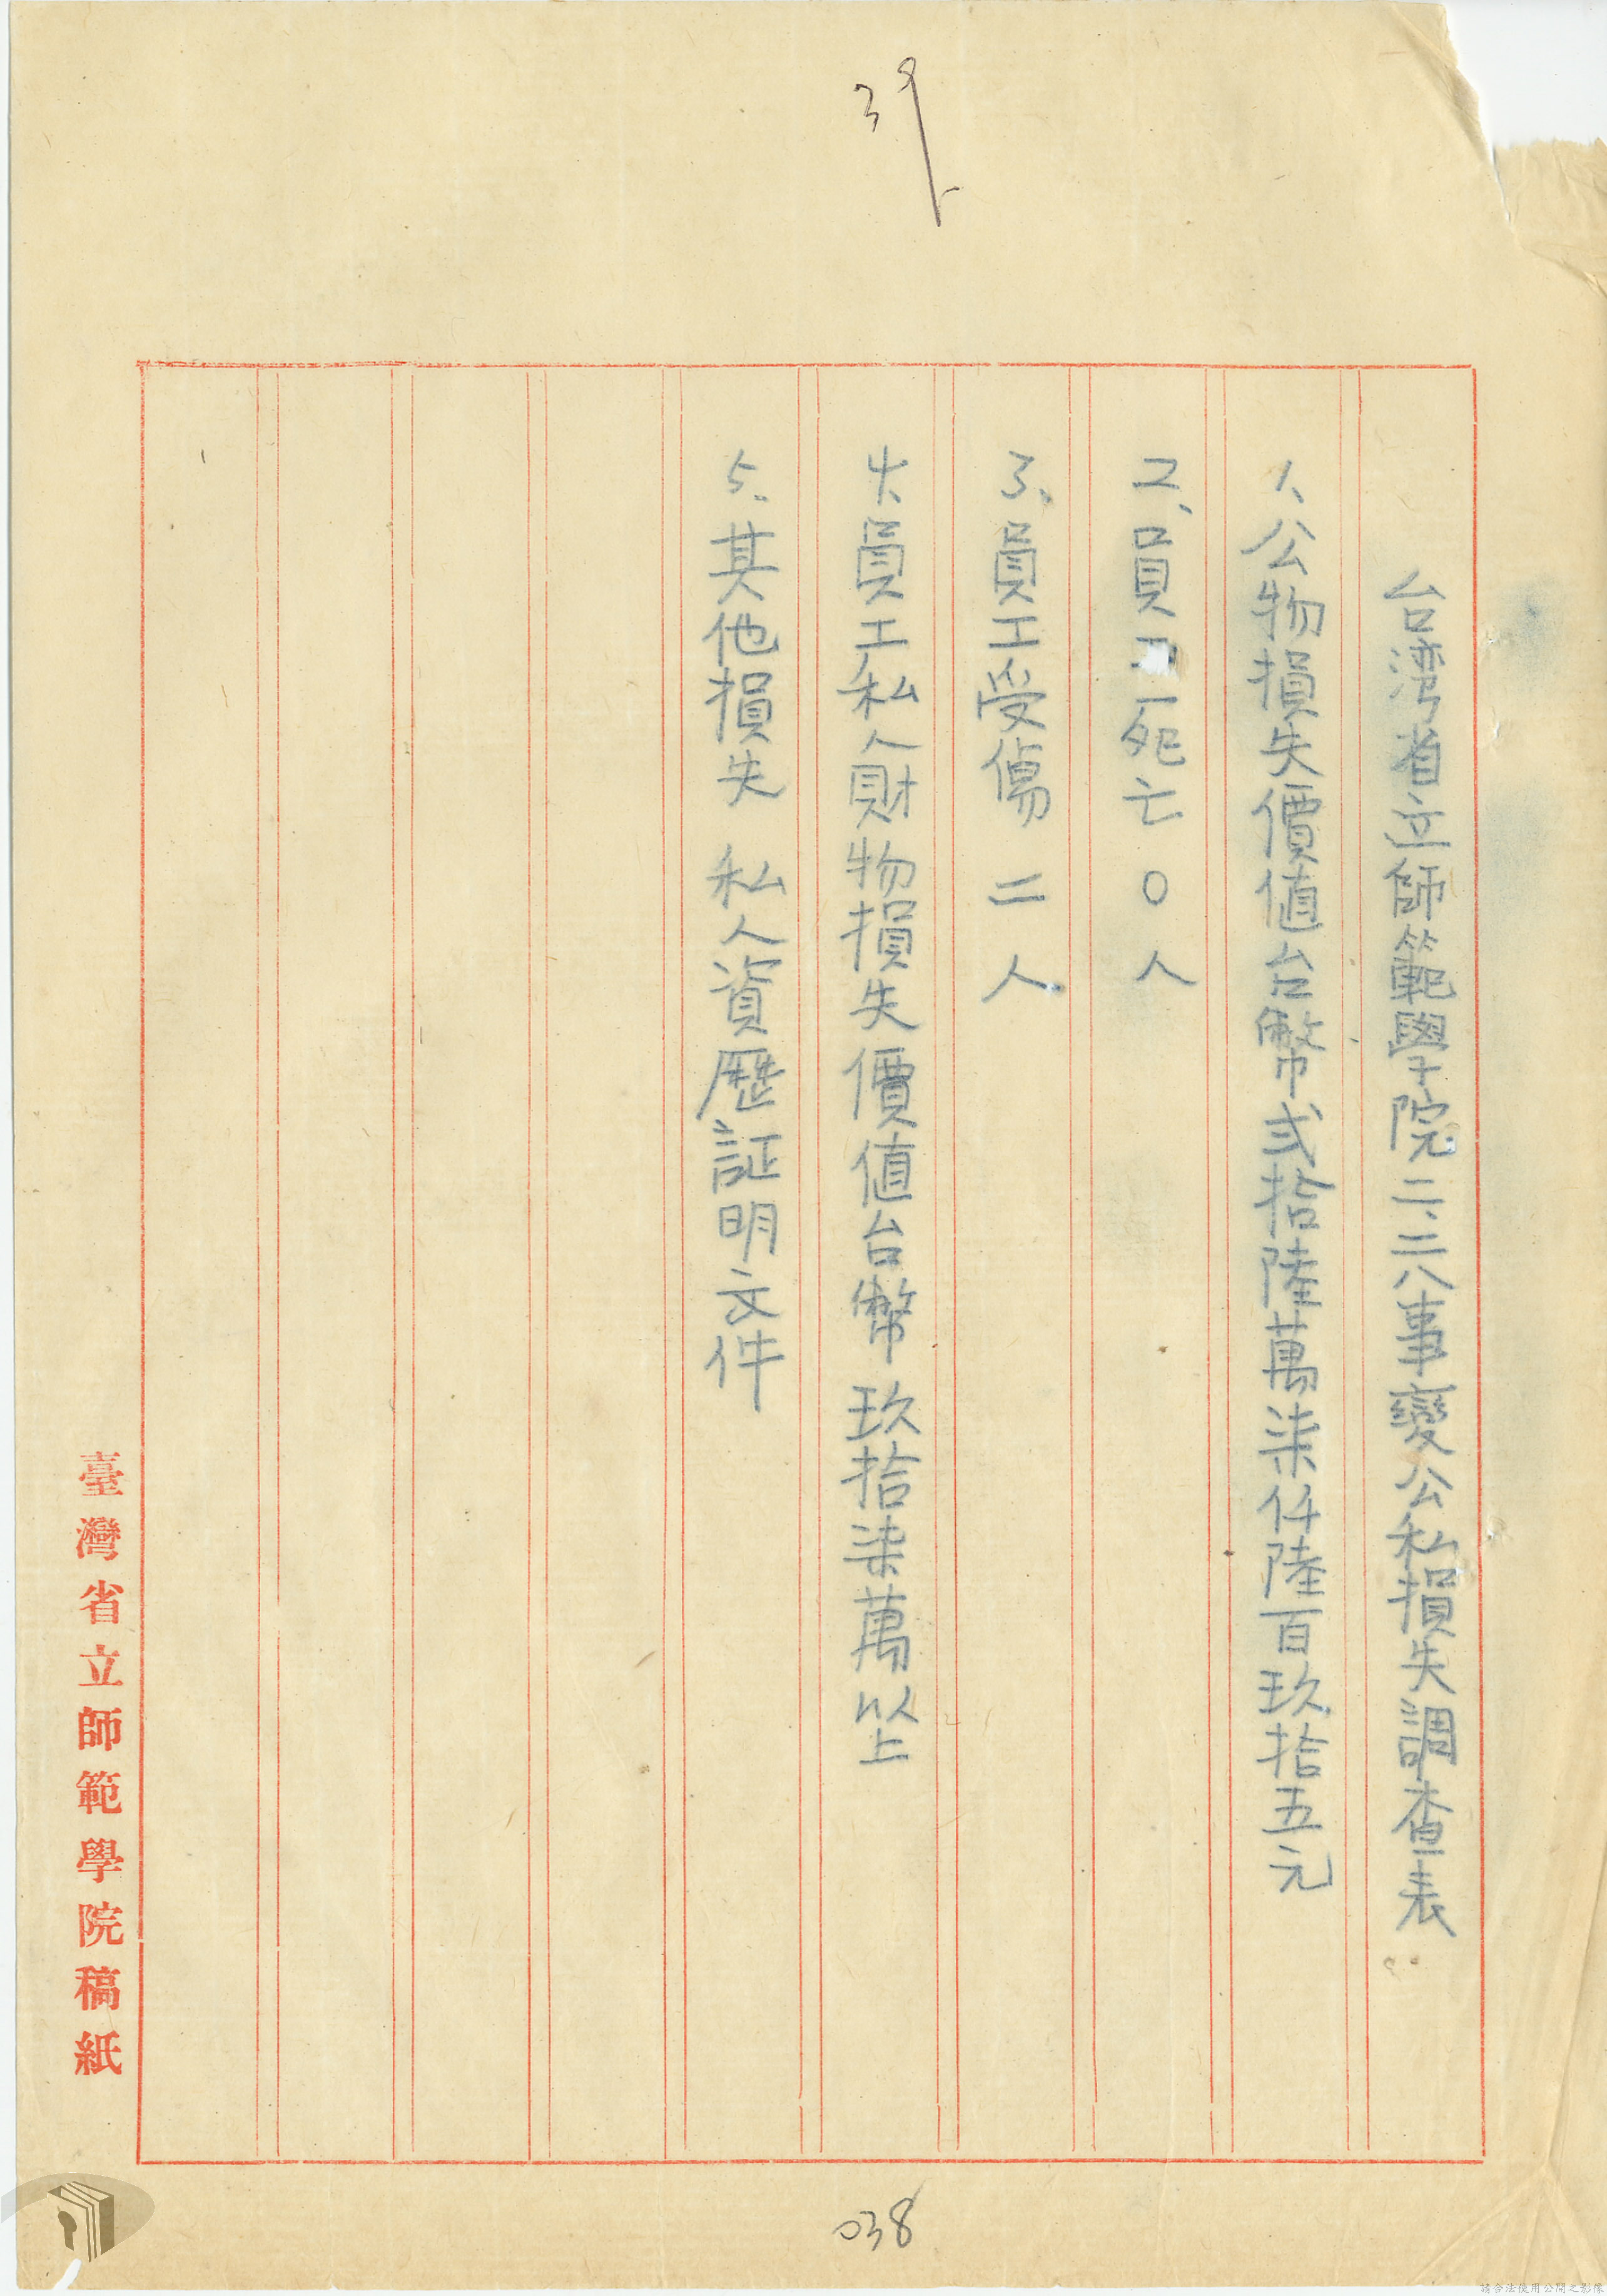 39
台湾省立師範學院二、二八事變公私損失調查表
1、公物損失價値台幣弍拾陸萬柒仟陸百玖拾五元
2、員工死亡 0 人
3、員工受傷 二 人
4、員工私人財物損失價値台幣 玖拾柒萬以上
5、其他損失 私人資歷証明文件
臺灣省立師範學院稿紙
038
請合法使用公開之影像